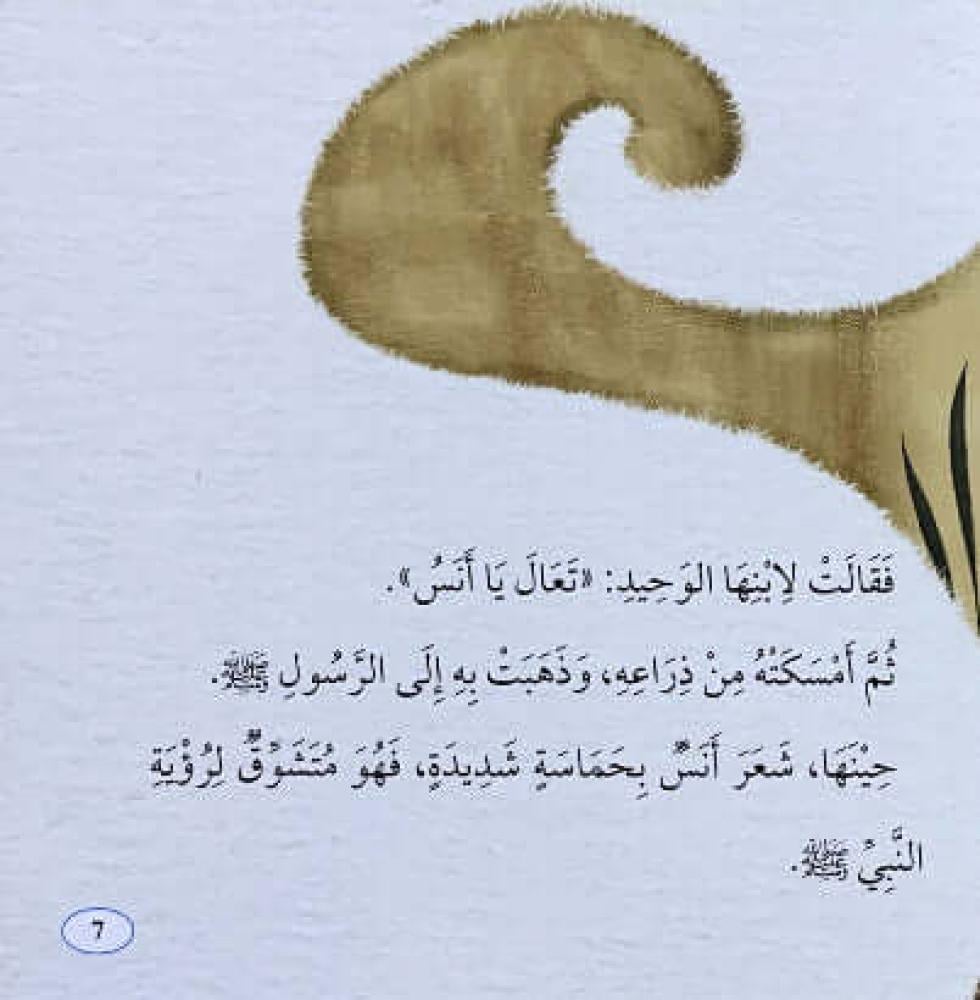 فَقَالَتْ لِابْنِهَا الوَحِيدِ: «تَعَالَ يَا أَنَسُ».
ثُمَّ أَمْسَكَتْهُ مِنْ ذِرَاعِهِ، وَذَهَبَتْ بِهِ إِلَى الرَّسُولِ ﷺ.
حِيْنَهَا، شَعَرَ أَنَسٌ بِحَمَاسَةٍ شَدِيدَةٍ، فَهُوَ مُتَشَوِّقٌ لِرُؤْيَةِ
النَّبِيِّ ﷺ.
7